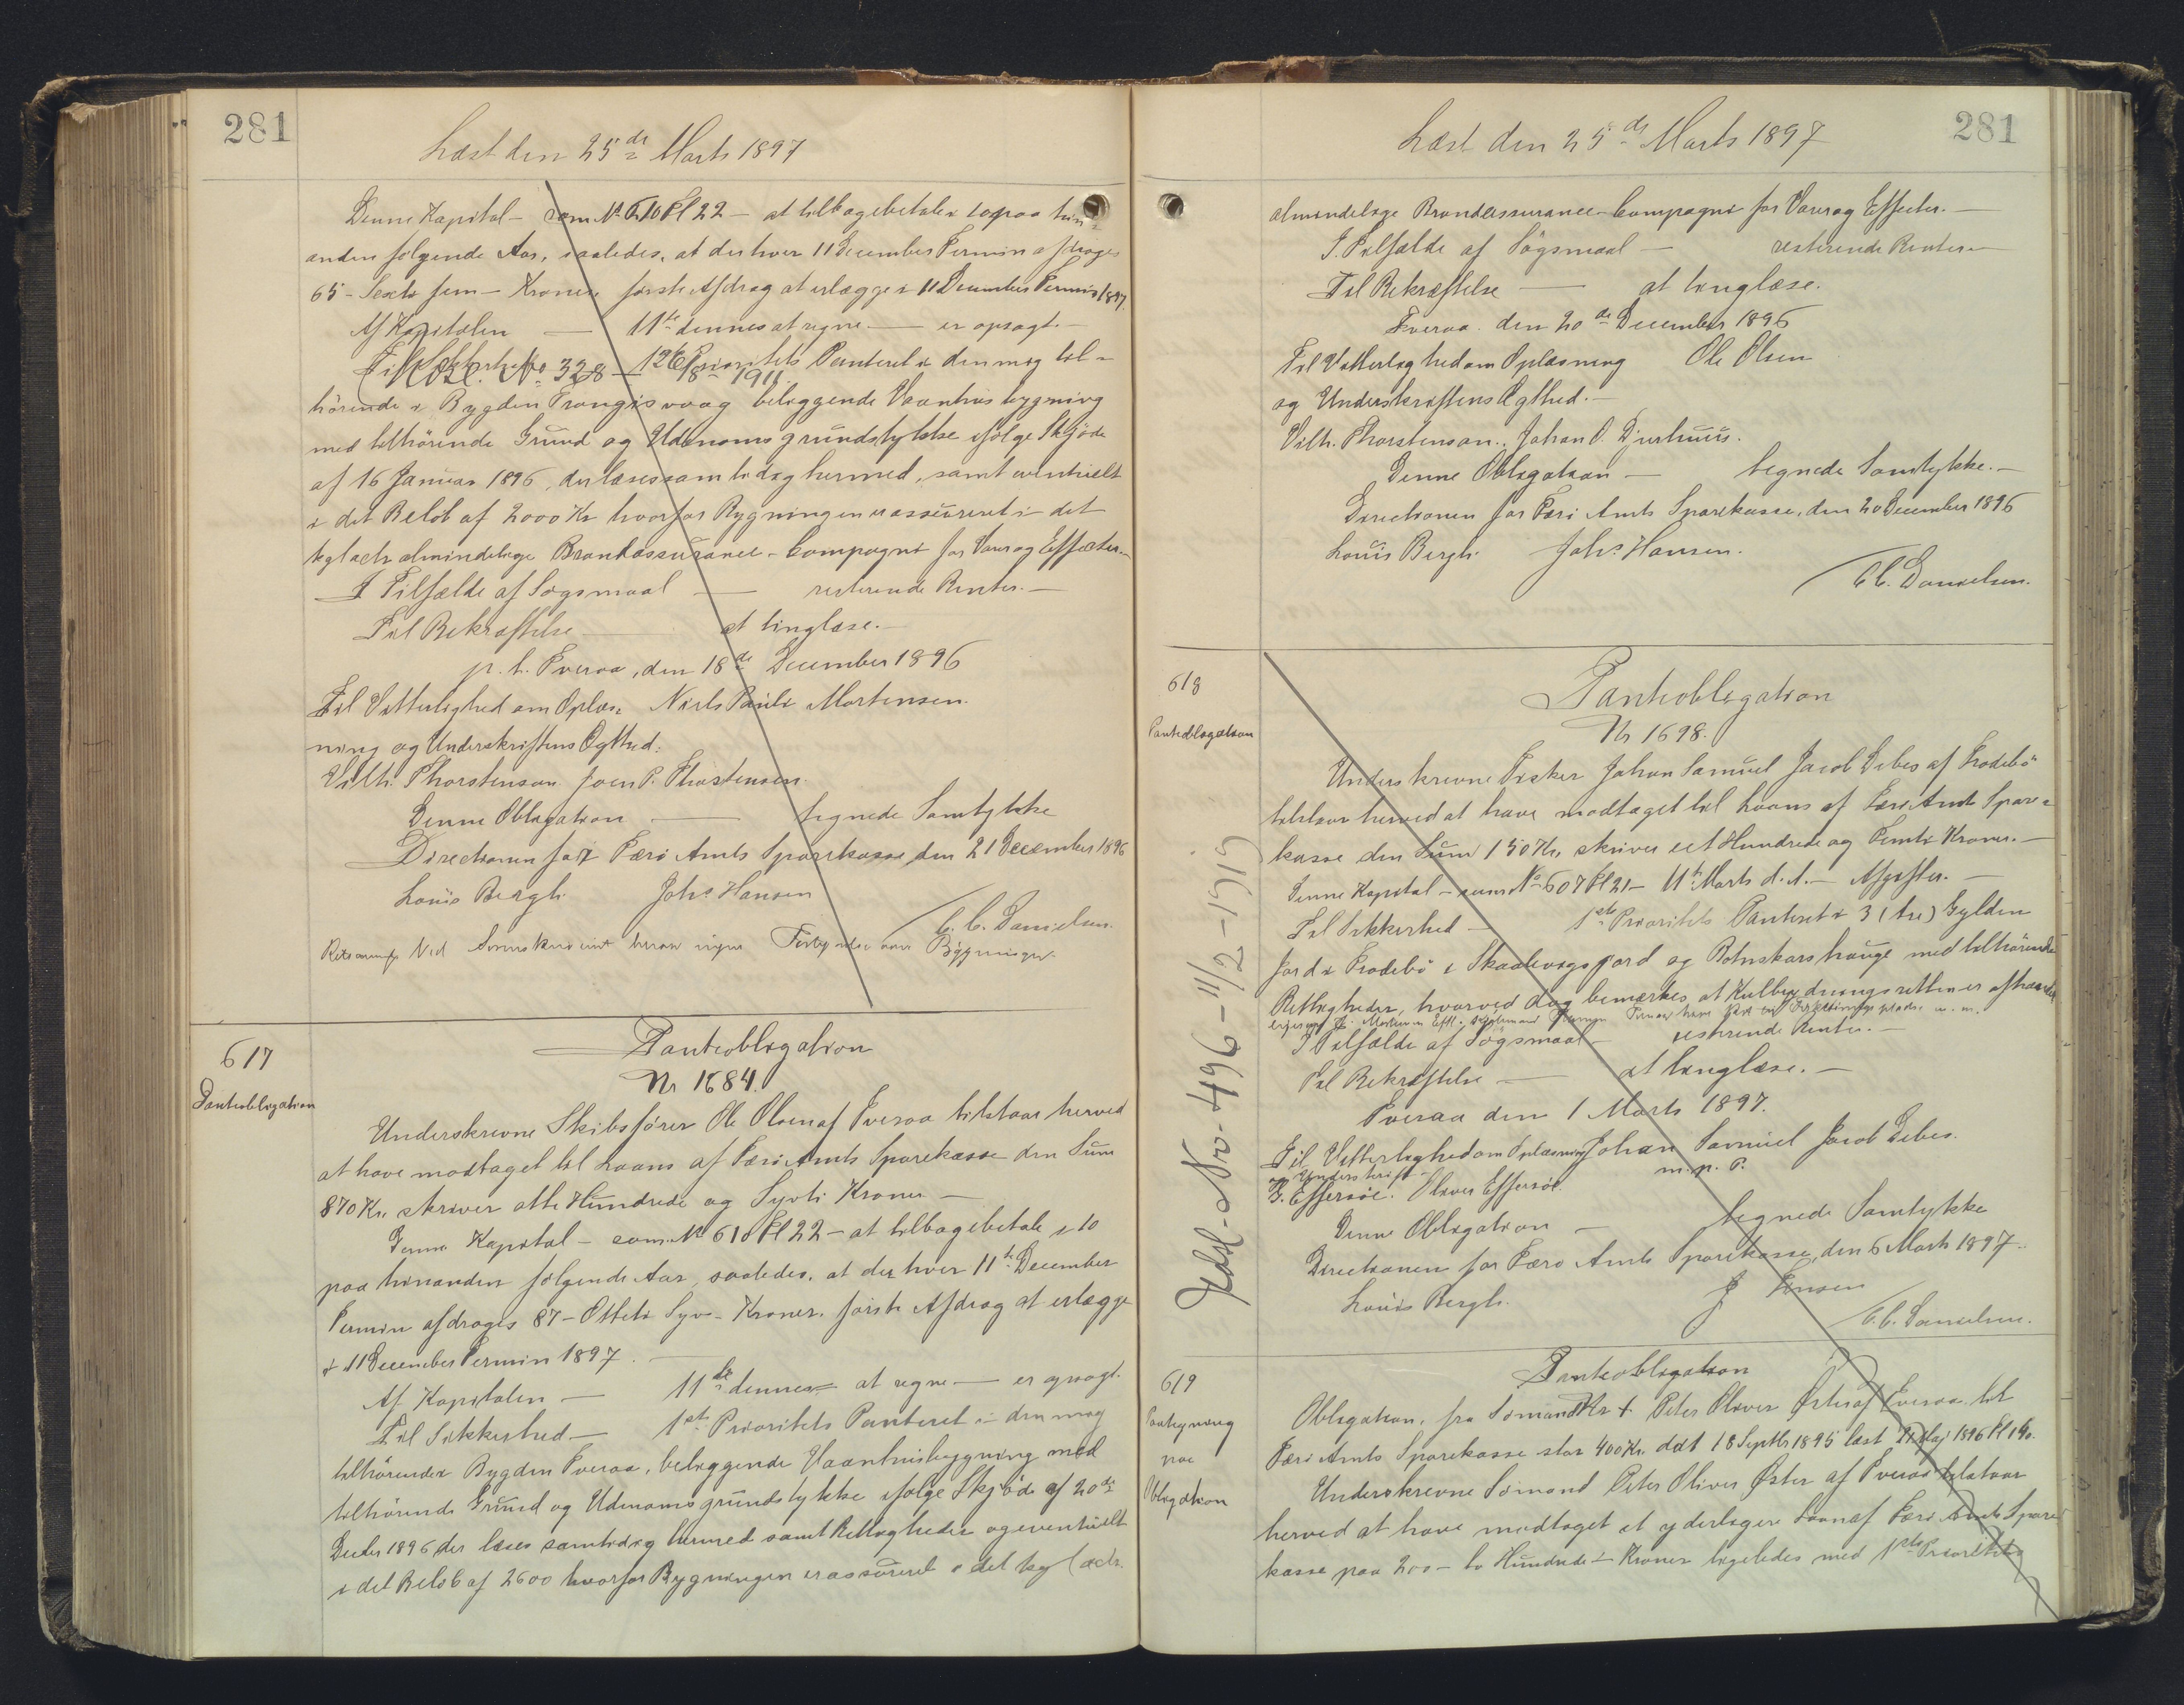 281
Læst den 25de Marts 1897
Denne Kapital – som No 610 Fl 22 – at tilbagebetale i 10 paa hin-
anden følgende Aar, saaledes, at der hver 11 December Termin afdrages
65 – Sexti fem – Kroner, første Afdrag at erlægge i 11 December Termin 1897.
Af Kapitalen — 11te dennes at regne — er opsagt. –
Til Sikkerhed 1ste Prioritets Panteret i den mig til-
No 328 – 1911
hörende i Bygden Trangisvaag beliggende Vaanhusbygning
med tilhörende Grund og Udenomsgrundstykke ifølge Skjöde
af 16 Januar 1896, der læses samtidig hermed, samt eventuelt
i det Belöb af 2000 Kr hvorfor Bygningen er assureret i det
kgl octr almindelige Brandassurance-Compagni for Varer og Effecter. –
I Tilfælde af Søgsmaal — resterende Renter. —
Til Bekræftelse — at tinglæse. –
p. t. Tveraa, den 18de December 1896
Til Vitterlighed om Oplæs- Niels Pauli Mortensen.
ning og Underskriftens Ægthed:
Vilh. Thorstenson Joen P. Thorstensen.
Denne Obligation — tegnede Samtykke
Directionen for Færø Amts Sparekasse, den 21 December 1896
Louis Bergh. Johs Hansen
C. C. Danielsen.
617
Panteobligation
Panteobligation
Nr 1684.
Underskrevne Skibsfører Ole Olsen af Tveraa tilstaar herved
at have modtaget til Laans af Færø Amts Sparekasse den Sum
870 Kr. skriver otte Hundrede og Syvti Kroner —
Denne Kapital – som No 610 Fl 22 – at tilbagebetale i 10
paa hinanden følgende Aar, saaledes, at der hver 11te December
Termin afdrages 87 – Otteti Syv – Kroner, første Afdrag at erlægge
i 11 December Termin 1897. —
Af Kapitalen — 11te dennes at regne — er opsagt.
Til Sikkerhed — 1ste Prioritets Panteret i den mig
tilhörende i Bygden Tveraa, beliggende Vaanhusbygning med
tilhörende Grund og Udenomsgrundstykke ifølge Skjöde af 20de
Decbr 1896 der læses samtidig hermed samt Rettigheder og eventuelt
i det Belöb af 2600 hvorfor Bygningen er assureret i det kgl octr.
281
Læst den 25de Marts 1897
almindelige Brandassurance-Compagni for Varer og Effecter. —
I Tilfælde af Søgsmaal — resterende Renter —
Til Bekræftelse — at tinglæse.
Tveraa. den 20de December 1896
Til Vitterlighed om Oplæsning Ole Olsen
og Underskriftens Ægthed. –
Vilh. Thorstenson., Johan O. Djurhuus.
Denne Obligation — tegnede Samtykke. –
Directionen for Færø Amts Sparekasse, den 20 December 1896
Louis Bergh. Johs Hansen.
C. C. Danielsen.
618
Panteobligation
Panteobligation
Nr 1698.
Underskrevne Fisker Johan Samuel Jacob Debes af Frodebö
tilstaar herved at have modtaget til Laans af Færø Amts Spare-
kasse den Sum 150 Kr. skriver eet Hundrede og Femti Kroner. –
Denne Kapital – som No 607 Fl 21 – 11te Marts d. A. – Afgifter. –
Til Sikkerhed — 1ste Prioritets Panteret i 3 (tre) Gylden
Jord i Frodebö i Skaalevogsjord og Botnskarshauge med tilhörende
Rettigheder, hvorved dog bemærkes, at Kulbrydningsretten er afhændet
I Tilfælde af Søgsmaal – resterende Renter. –
Til Bekræftelse — at tinglæse. –
Tveraa den 1 Marts 1897.
Til Vitterlighed om Oplæsning Johan Samuel Jacob Debes.
og Underskrift – m. p. P.
G. Effersöe. Oliver Effersöe.
Denne Obligation – tegnede Samtykke
Directionen for Færø Amts Sparekasse, den 6 Marts 1897.
Louis Bergh. J Jensen
C. C. Danielsen.
Jrbl. No. 496 – 11/2 – 1919
619
Paategning
paa
Obligation
Panteobligation
Obligation, fra Sömand Peter Oliver Öster af Tveraa til
Færø Amts Sparekasse stor 400 Kr. dat 18 Septbr 1895 læst Maj 1896 Fl 190.
Underskrevne Sömand Peter Oliver Öster af Tveraa tilstaar
herved at have modtaget et yderligere Laan af Færø Amts Spare-
kasse paa 200 – to Hundrede – Kroner ligeledes med 1ste Prioritets